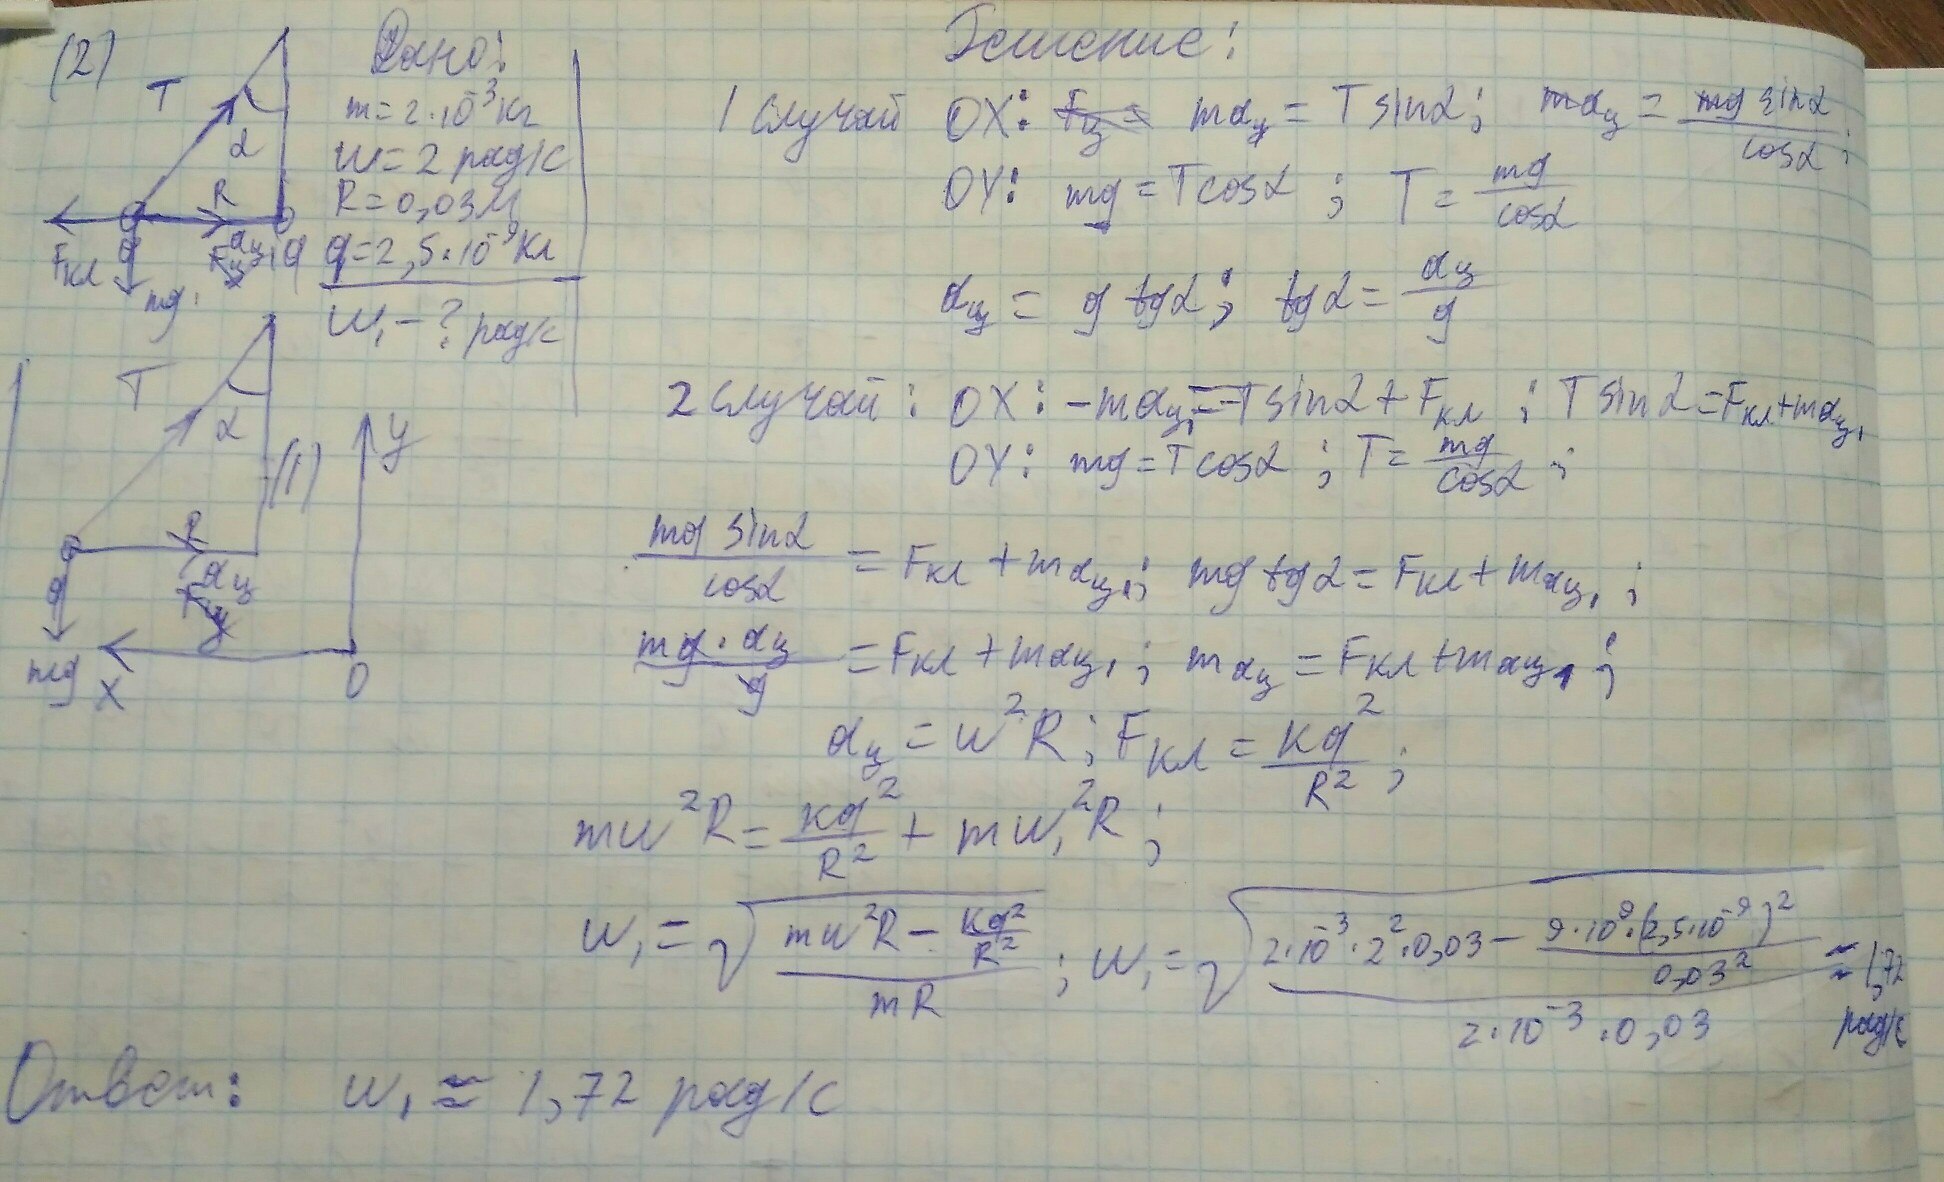 (2) Дано: Решение:
T
α
R
Fкл
aц
Fц
q
mg
m=2·10⁻³ кг
w=2 рад/с
R=0,03м
q=2,5·10⁻⁹ Кл
w₁-? рад/с
1 случай OX: Fц = maц = T sinα; maц = mg sinα / cosα;
OY: mg = T cosα ; T = mg / cosα
aц = g tgα; tgα = aц / g
T
α
(1)
y
R
aц
Fц
mg
X
O
2 случай: OX: -maц₁ = -T sinα + Fкл ; T sinα = Fкл + maц₁
OY: mg = T cosα ; T = mg / cosα ;
mg sinα / cosα = Fкл + maц₁; mg tgα = Fкл + maц₁ ;
mg · aц / g = Fкл + maц₁ ; maц = Fкл + maц₁ ;
aц = w²R ; Fкл = kq² / R² ;
mw²R = kq² / R² + mw₁²R ;
w₁ = √((mw²R - kq²/R²) / mR) ; w₁ = √((2·10⁻³·2²·0,03 - 9·10⁹·(2,5·10⁻⁹)² / 0,03²) / 2·10⁻³·0,03) ≈ 1,72 рад/с
Ответ: w₁ ≈ 1,72 рад/с